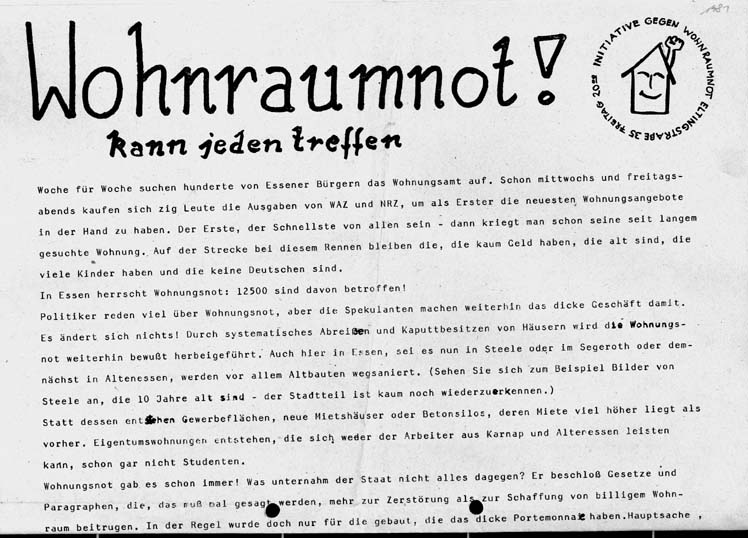 1981
Wohnraumnot!
kann jeden treffen
INITIATIVE GEGEN WOHNRAUMNOT ELTINGSTRAßE 35 FREITAG 20⁰⁰
Woche für Woche suchen hunderte von Essener Bürgern das Wohnungsamt auf. Schon mittwochs und freitags-
abends kaufen sich zig Leute die Ausgaben von WAZ und NRZ, um als Erster die neuesten Wohnungsangebote
in der Hand zu haben. Der Erste, der Schnellste von allen sein - dann kriegt man schon seine seit langem
gesuchte Wohnung. Auf der Strecke bei diesem Rennen bleiben die, die kaum Geld haben, die alt sind, die
viele Kinder haben und die keine Deutschen sind.
In Essen herrscht Wohnungsnot: 12500 sind davon betroffen!
Politiker reden viel über Wohnungsnot, aber die Spekulanten machen weiterhin das dicke Geschäft damit.
Es ändert sich nichts! Durch systematisches Abreißen und Kaputtbesitzen von Häusern wird die Wohnungs-
not weiterhin bewußt herbeigeführt. Auch hier in Essen, sei es nun in Steele oder im Segeroth oder dem-
nächst in Altenessen, werden vor allem Altbauten wegsaniert. (Sehen Sie sich zum Beispiel Bilder von
Steele an, die 10 Jahre alt sind - der Stadtteil ist kaum noch wiederzuerkennen.)
Statt dessen entstehen Gewerbeflächen, neue Mietshäuser oder Betonsilos, deren Miete viel höher liegt als
vorher. Eigentumswohnungen entstehen, die sich weder der Arbeiter aus Karnap und Altenessen leisten
kann, schon gar nicht Studenten.
Wohnungsnot gab es schon immer! Was unternahm der Staat nicht alles dagegen? Er beschloß Gesetze und
Paragraphen, die, das muß mal gesagt werden, mehr zur Zerstörung als zur Schaffung von billigem Wohn-
raum beitrugen. In der Regel wurde doch nur für die gebaut, die das dicke Portemonnaie haben.Hauptsache ,